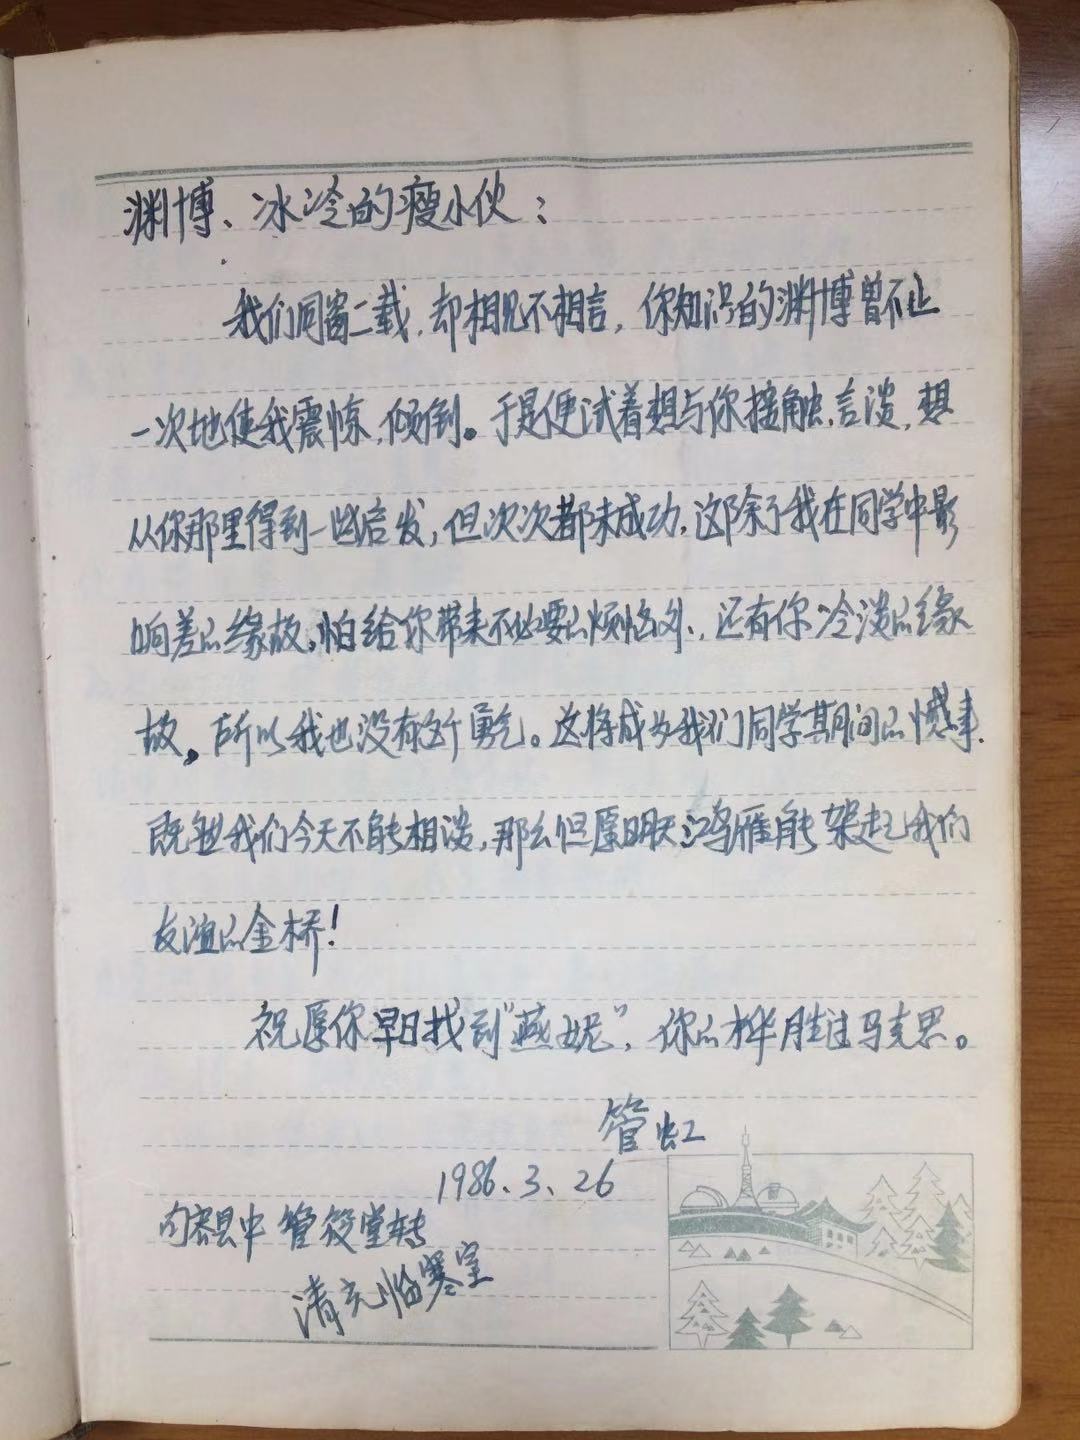 渊博、冰冷的瘦小伙：
我们同窗二载，却相见不相言，你知识的渊博曾不止
一次地使我震惊，倾倒。于是便试着想与你接触，言谈，想
从你那里得到一些启发，但次次都未成功，这除了我在同学中影
响差的缘故，怕给你带来不必要的烦恼外，还有你冷淡的缘
故。所以我也没有这个勇气。这将成为我们同学期间的憾事，
既然我们今天不能相谈，那么但愿明天鸿雁能架起我们
友谊的金桥！
祝愿你早日找到"燕妮"，你的才华胜过马克思。
管虹
1986.3.26
内 县中 管 堂转
清 临寒室